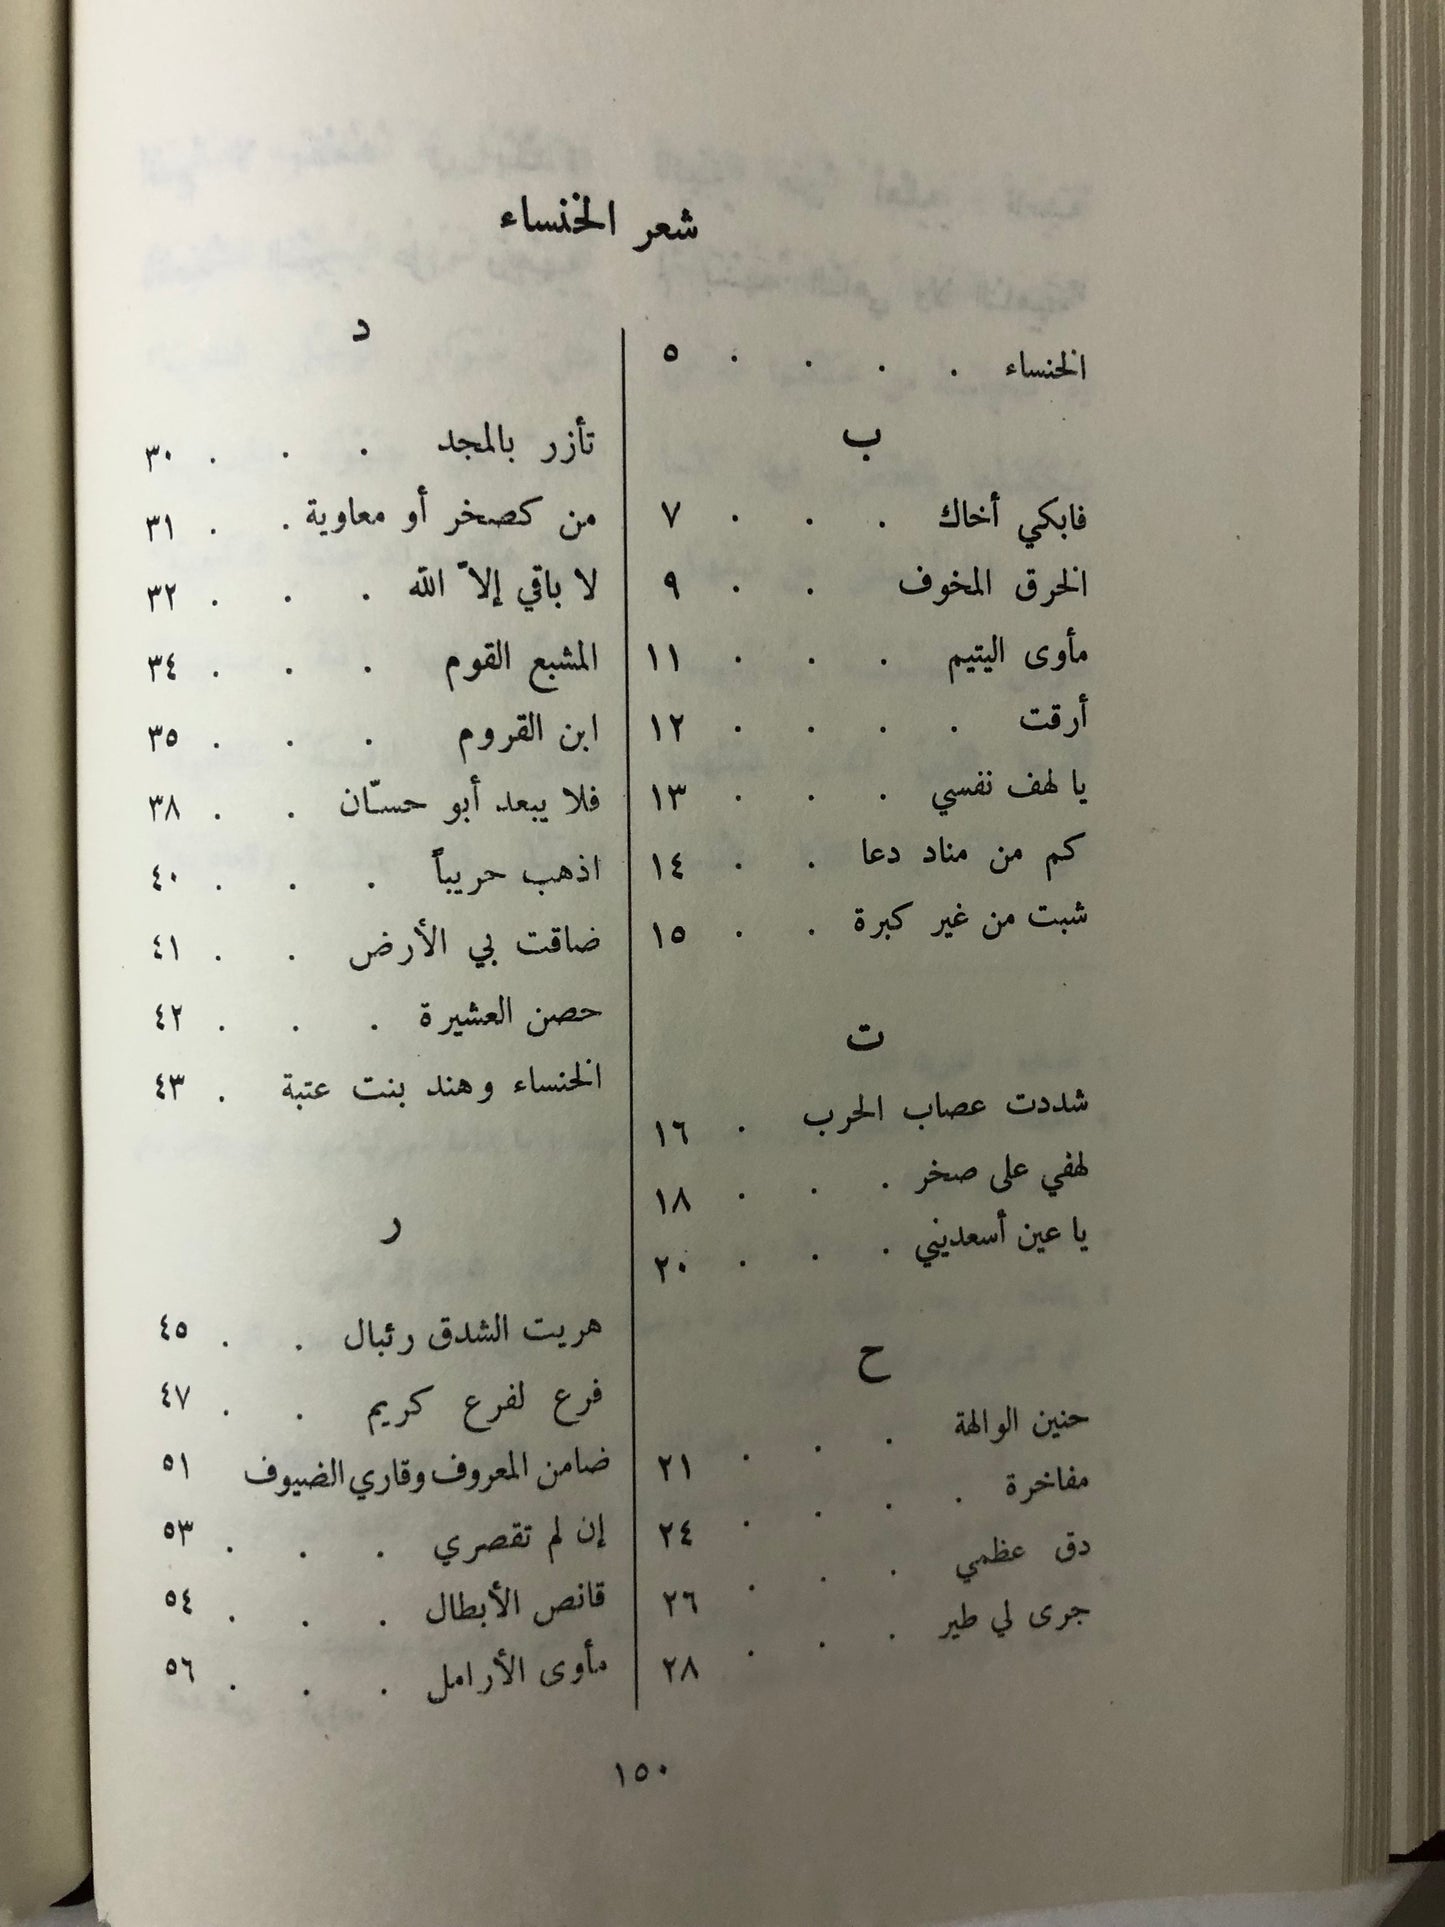 شعر الخنساء
الخنساء . . . . ٥
ب
فابكي أخاك . . . ٧
الخرق المخوف . . ٩
مأوى اليتيم . . . ١١
أرقت . . . . ١٢
يا لهف نفسي . . . ١٣
كم من مناد دعا . . ١٤
شبت من غير كبرة . . ١٥
ت
شددت عصاب الحرب . ١٦
لهفي على صخر . . . ١٨
يا عين أسعديني . . . ٢٠
ح
حنين الوالهة . . . ٢١
مفاخرة . . . . ٢٤
دق عظمي . . . ٢٦
جرى لي طير . . . ٢٨
د
تأزر بالمجد . . . ٣٠
من كصخر أو معاوية . . ٣١
لا باقي إلاّ الله . . . ٣٢
المشبع القوم . . . ٣٤
ابن القروم . . . ٣٥
فلا يبعد أبو حسّان . . ٣٨
اذهب حريباً . . . ٤٠
ضاقت بي الأرض . . ٤١
حصن العشيرة . . . ٤٢
الخنساء وهند بنت عتبة . ٤٣
ر
هريت الشدق رئبال . . ٤٥
فرع لفرع كريم . . ٤٧
ضامن المعروف وقاري الضيوف ٥١
إن لم تقصري . . . ٥٣
قانص الأبطال . . . ٥٤
مأوى الأرامل . . . ٥٦
١٥٠